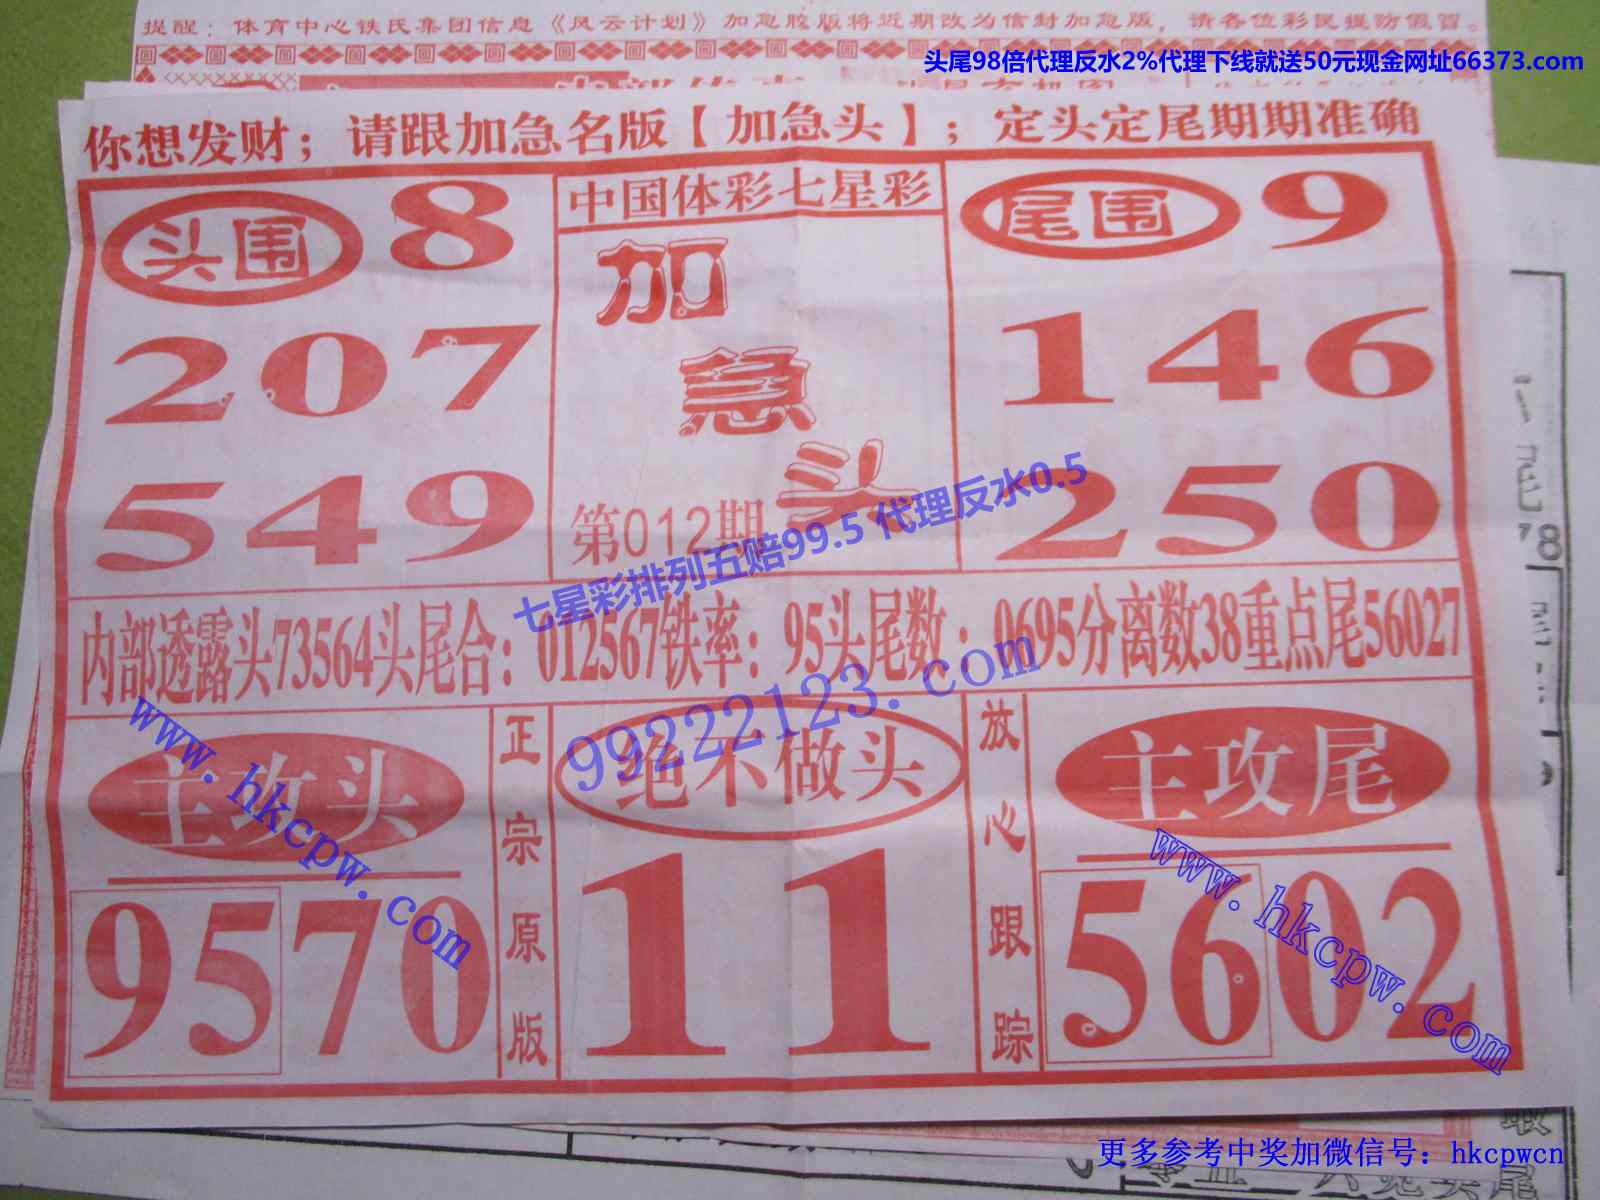 提醒：体育中心铁氏集团信息《风云计划》加急胶版将近期改为信封加急版，请各位彩民提防假冒。
头尾98倍代理反水2%代理下线就送50元现金网址66373.com
你想发财；请跟加急名版【加急头】；定头定尾期期准确
头围 8
207
549
中国体彩七星彩
加
急
头
第012期
尾围 9
146
250
七星彩排列五赔99.5 代理反水0.5
内部透露头73564头尾合：012567铁率：95头尾数：0695分离数38重点尾56027
99222123.com
www.hkcpw.com
主攻头
9570
正宗原版
绝不做头
11
放心跟踪
主攻尾
5602
www.hkcpw.com
更多参考中奖加微信号：hkcpwcn